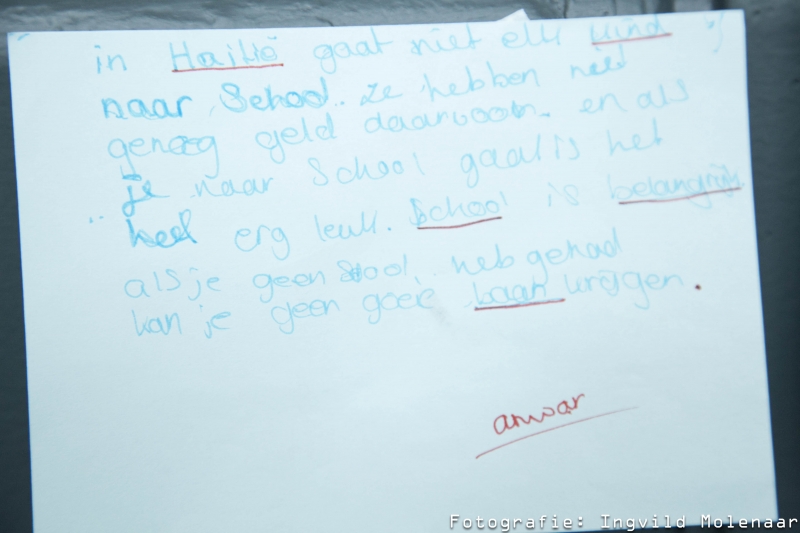 in Haitië gaat niet elk kind
naar School. ze hebben niet
genoeg geld daarvoor. en als
je naar School gaat is het
heel erg leuk. School is belangrijk
als je geen Skool heb gehad
kan je geen goeie baan krijgen.
anwar
Fotografie: Ingvild Molenaar